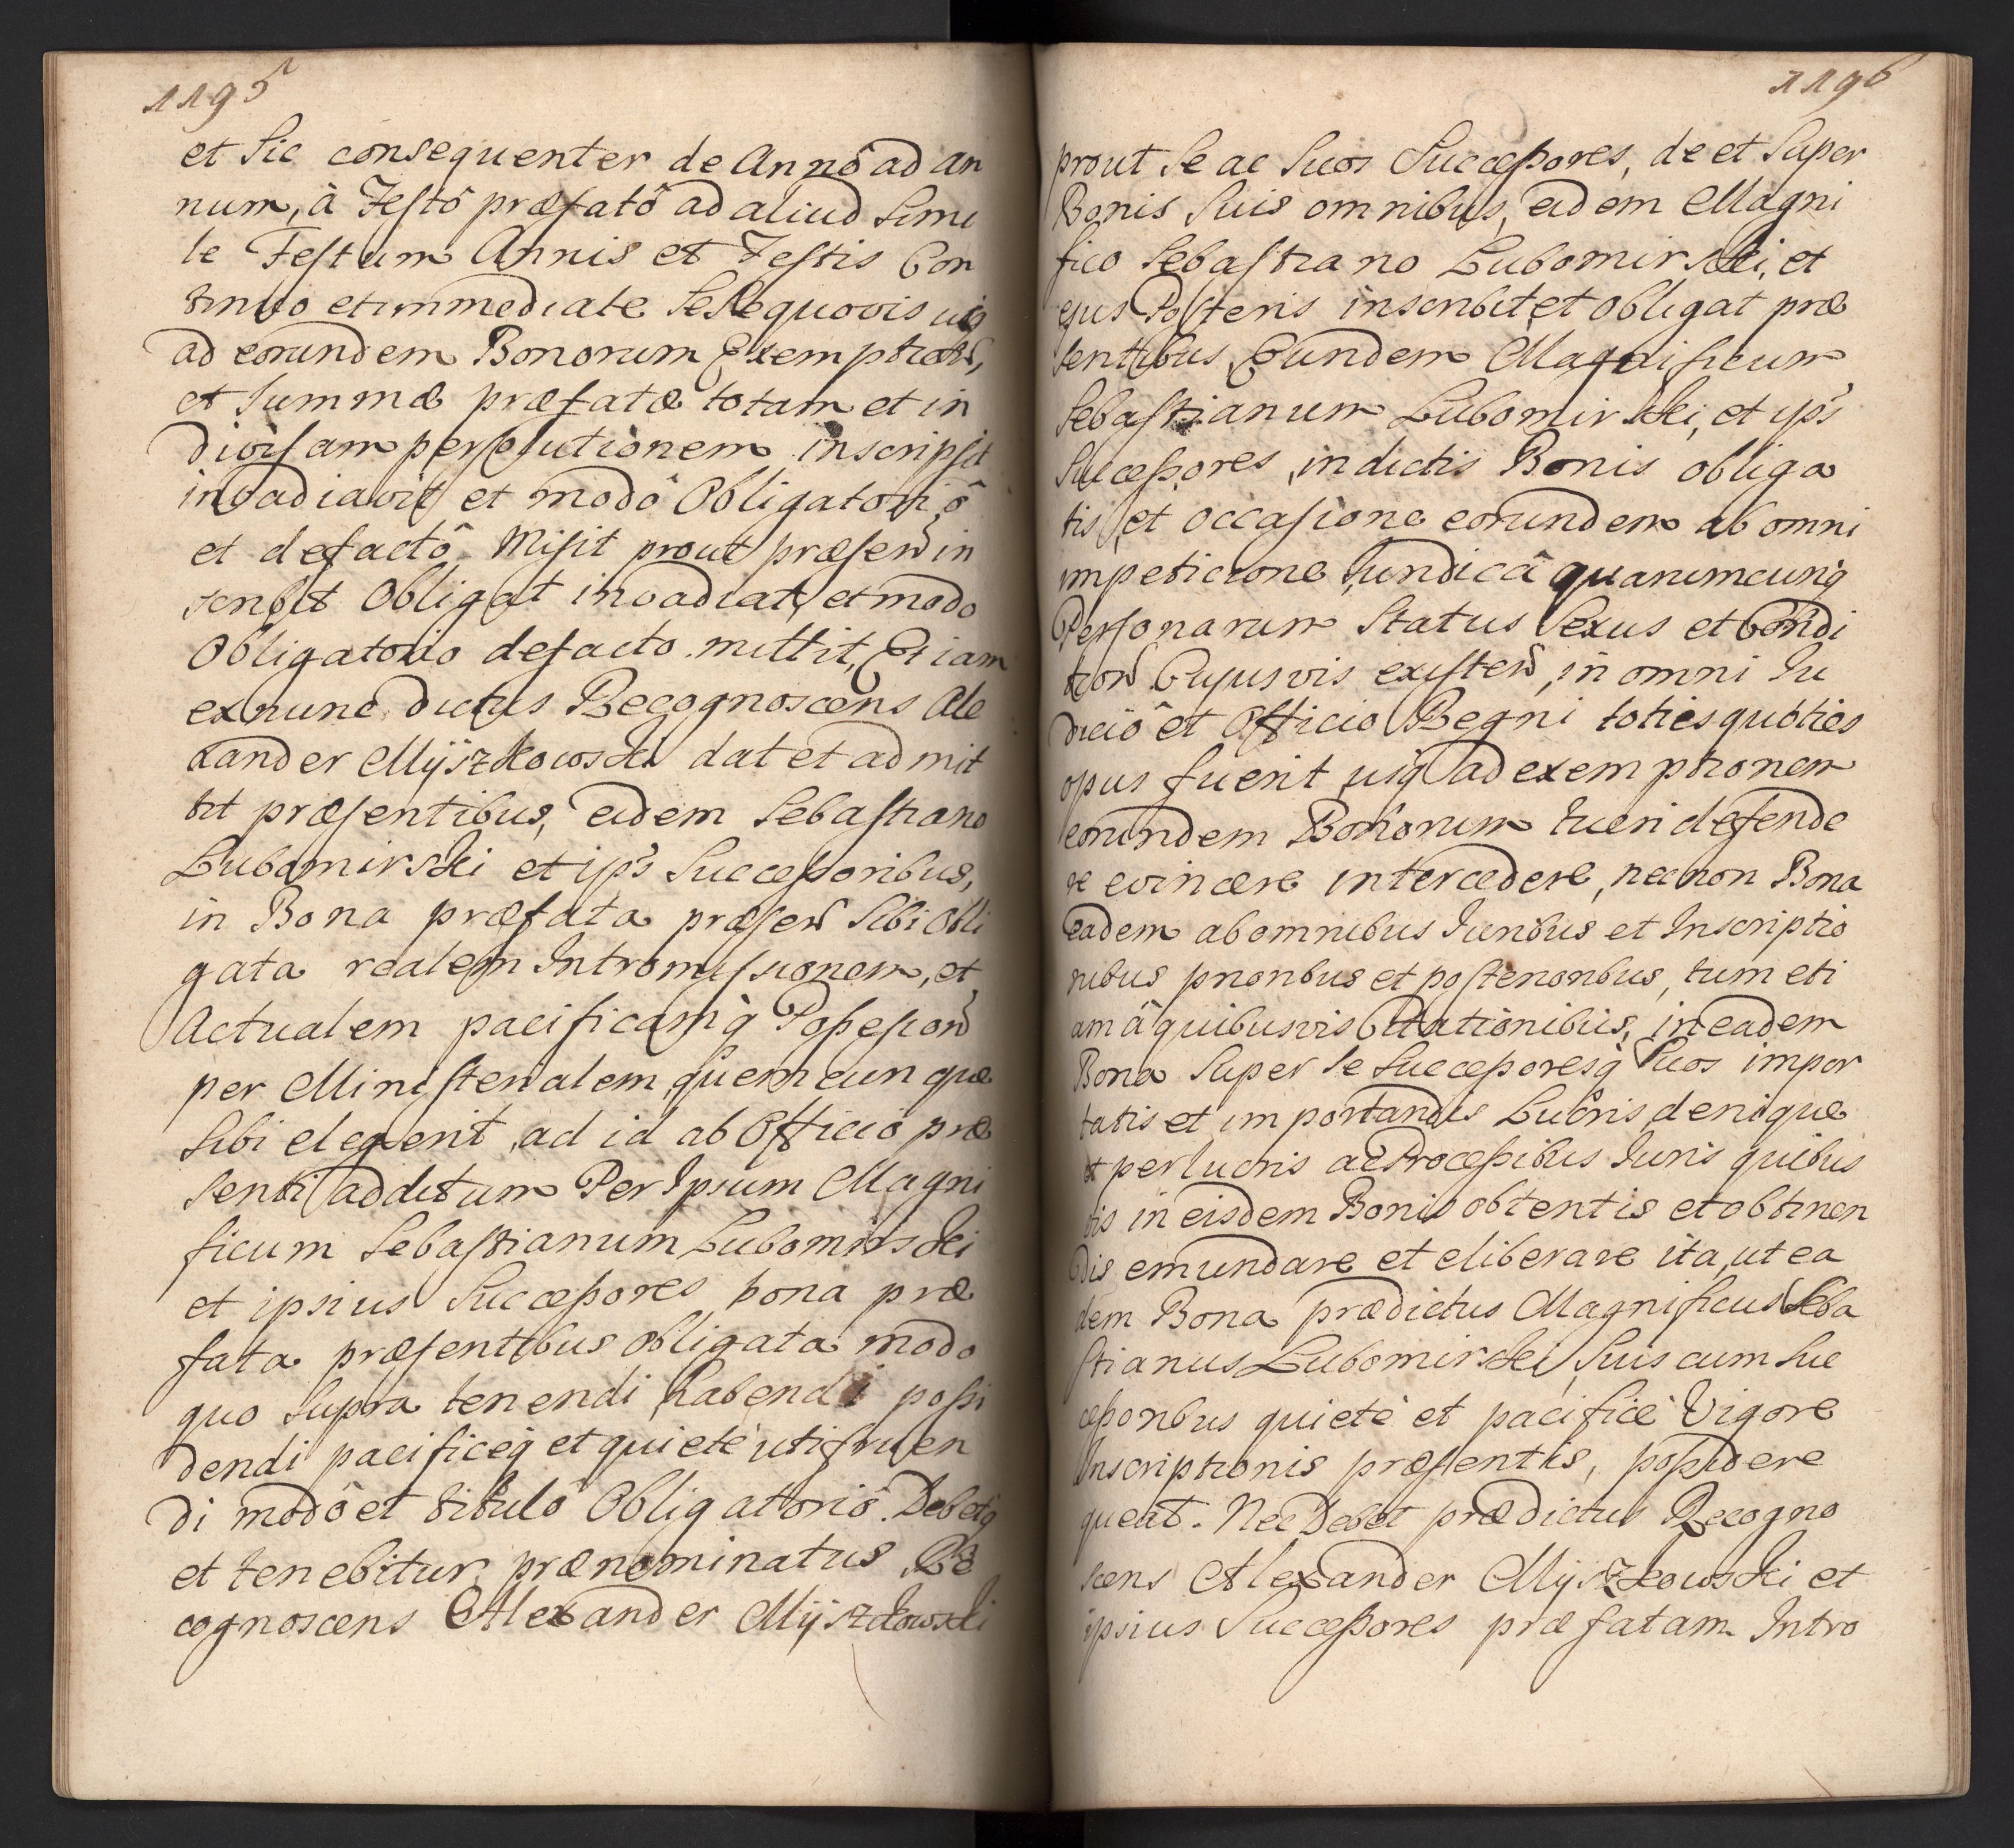 1195
et Sic consequenter de Annô ad an
num, à Festô præfatô ad aliud Simi
le Festum Annis et Festis Con
tinuo et immediate Se Sequovis usq
ad eorundem Bonorum Exemption,
et Summæ præfatæ totam et in
divisam persolutionem inscripsit
invadiavit et modô Obligatoriô
et defactô Misit prout præsen in
scribit Obligat invadiat, et modo
Obligatorio defacto mittit, Et iam
exnunc dictus Recognoscens Ale
xander Mÿszkowski dat et admit
tit præsentibus, eidem Sebastiano
Lubomirski et ips Successoribus,
in Bona præfata præsen Sibi Obli
gata realem Intromissionem, et
Actualem pacificamq Possession
per Ministerialem quemcunque
Sibi elegerit, ad id ab Officio præ
senti additum Per Ipsum Magni
ficum Sebastianum Lubomirski
et ipsius Successores bona præ
fata præsentibus obligata modo
quo Supra tenendi habendi possi
dendi pacificeq et quietè utifruen
di modô et titulô Obligatoriô. Debetq
et tenebitur prænominatus Re
cognoscens Alexander Mÿszkowski
1196
prout Se ac Suos Successores, de et Super
Bonis Suis omnibus, eidem Magni
fico Sebastiano Lubomirski, et
ejus Posteris inscribit et obligat præ
sentibus Eundem Magnificum
Sebastianum Lubomirski, et ips
Successores, in dictis Bonis obliga
tis, et occasione eorundem ab omni
impeticione Juridicâ quarumcunq
Personarum Status Sexus et Condi
tion Cujusvis existen, in omni Ju
diciô et Officio Regni toties quoties
opus fuerit, usq ad exemptionem
eorundem Bonorum tueri defende
re evincere intercedere, necnon Bona
eadem ab omnibus Juribus et Inscriptio
nibus prioribus et posterioribus, tum eti
am â quibusvis Citationibus, in eadem
Bona Super Se Successoresq Suos impor
tatis et importandis Lucris, denique
et perlucris ac Processibus Juris quibus
vis in eisdem Bonis obtentis et obtinen
dis emundare et eliberare ita, ut ea
dem Bona prædictus Magnificus Seba
stianus Lubomirski, Suis cum Suc
cessoribus quietè et pacificè Vigore
Inscriptionis præsentis, possidere
queat. Nec Debet prædictus Recogno
scens Alexander Mÿszkowski et
ipsius Successores præfatam Intro